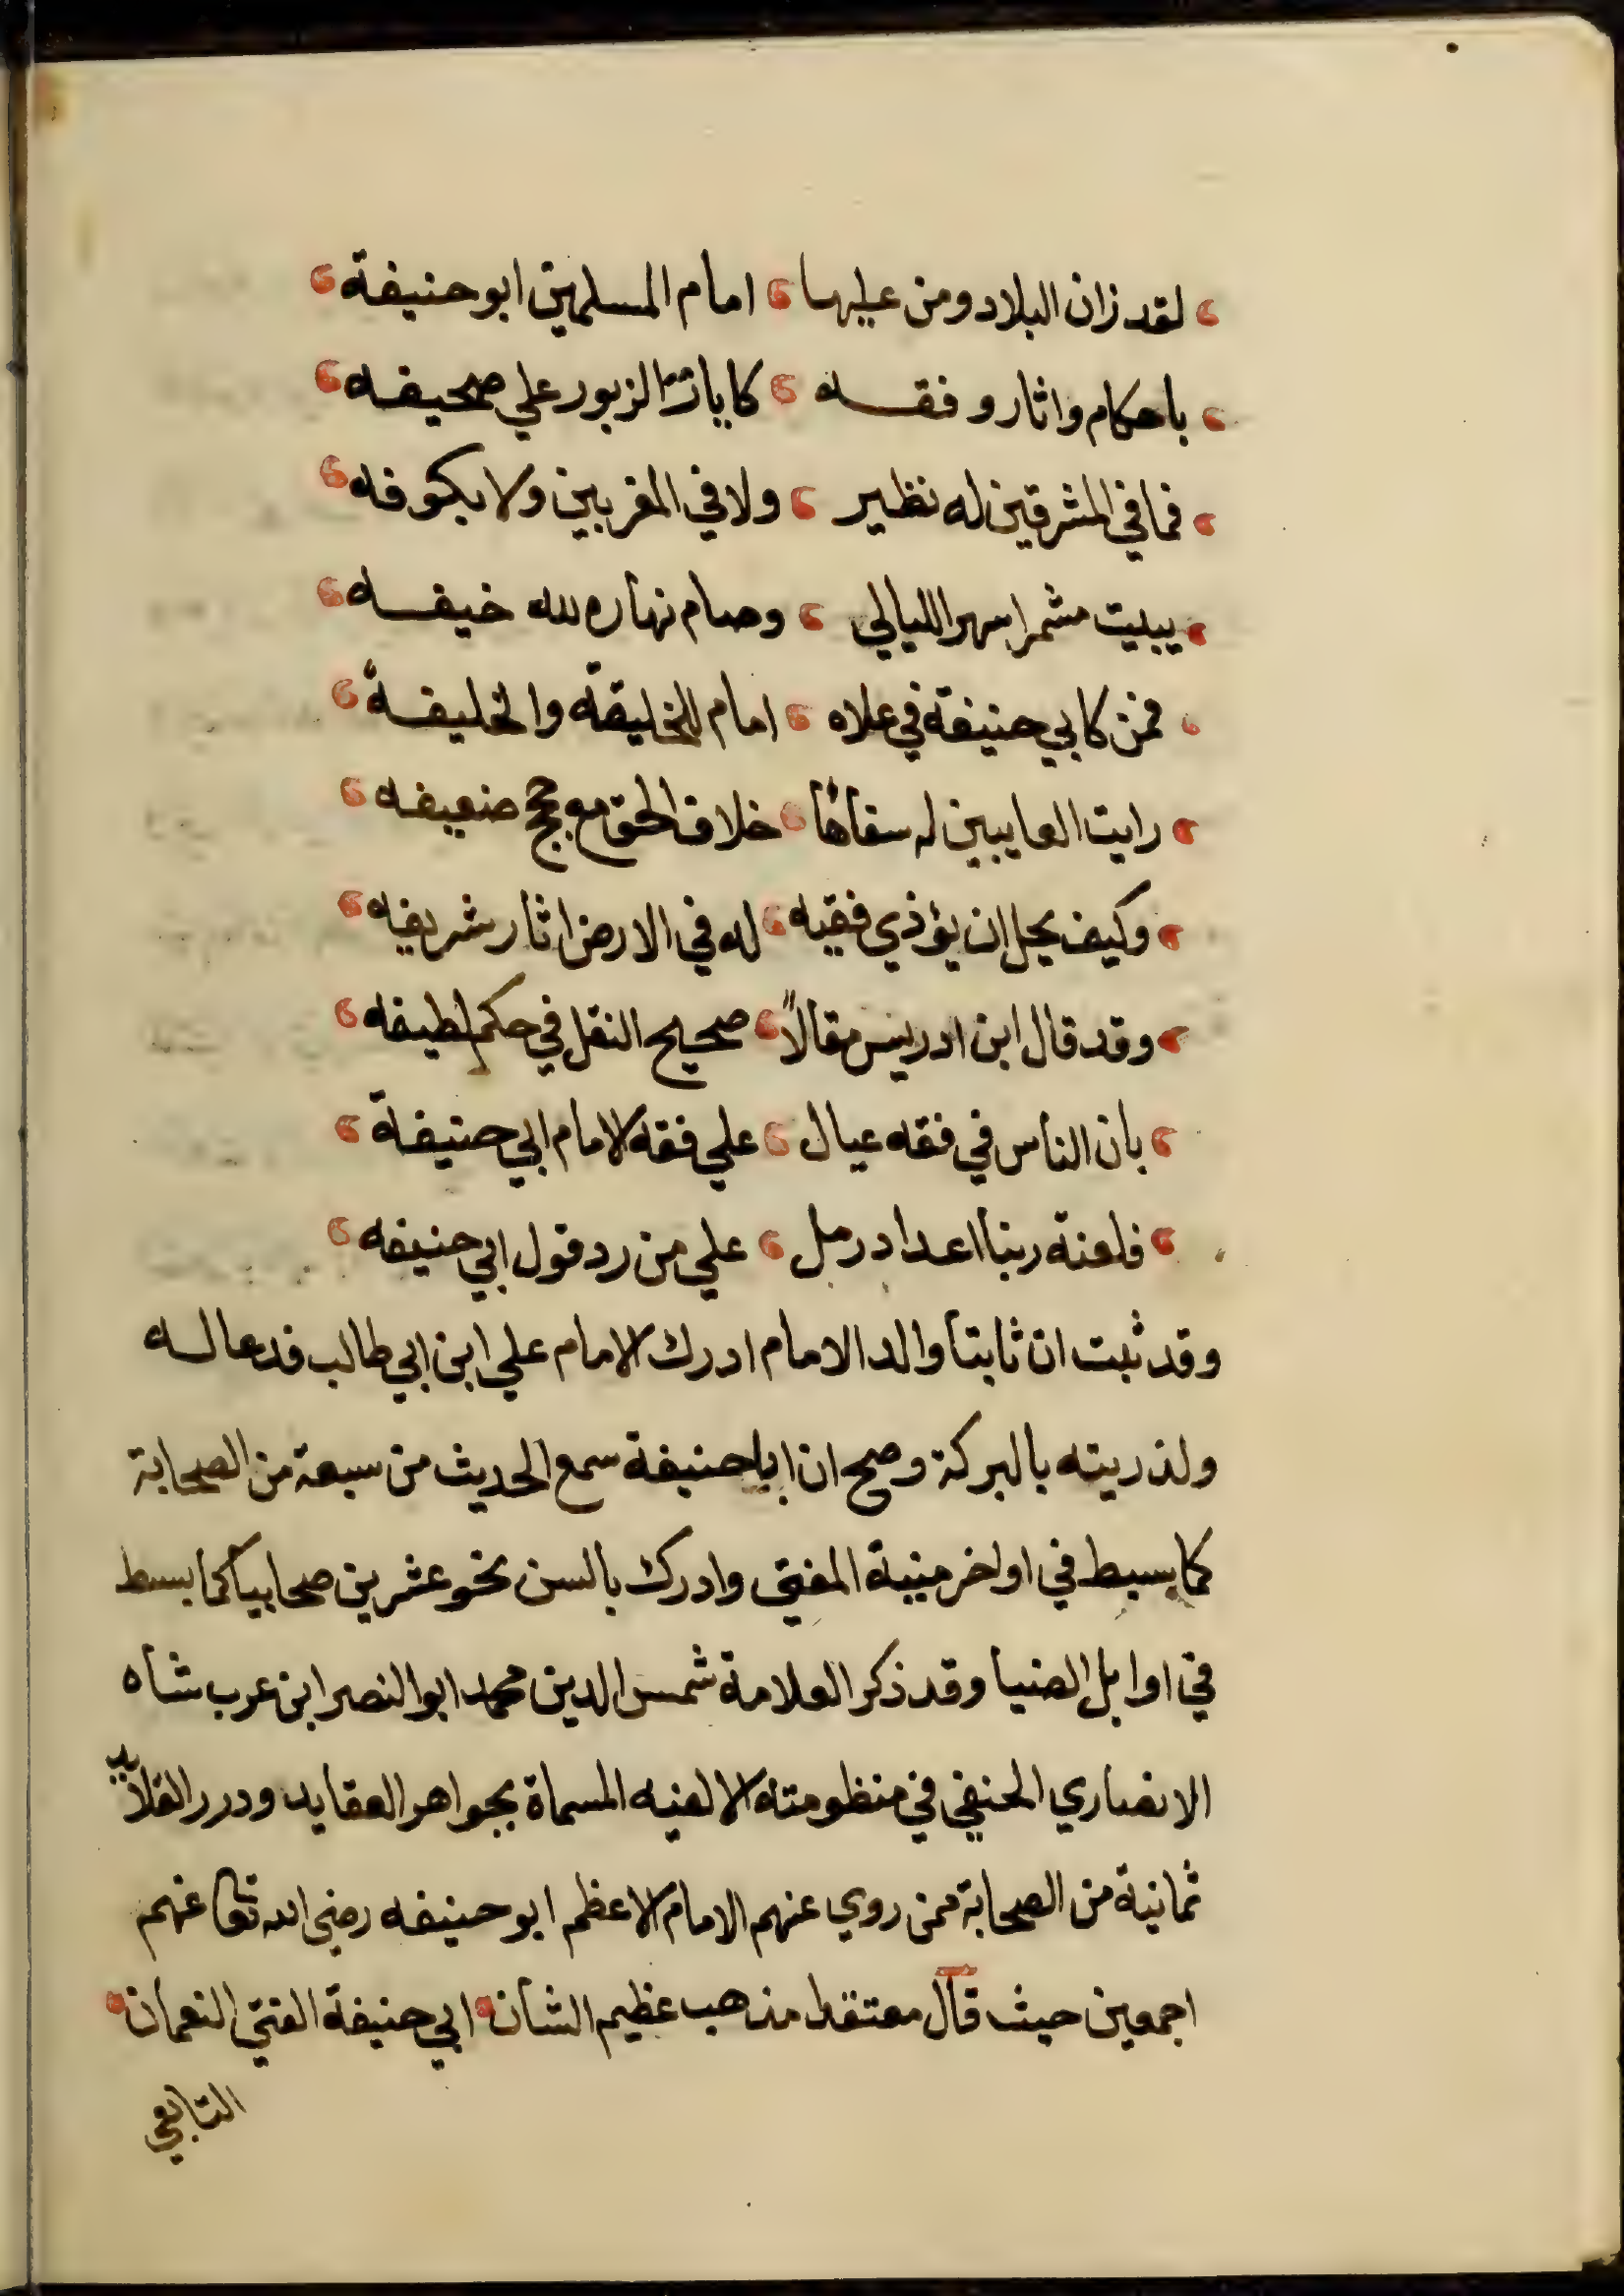 لقد زان البلاد ومن عليها ، امام المسلمين ابو حنيفة ،
باحكام واثار وفقه ، كايات الزبور علي صحيفه ،
فما في المشرقين له نظير ، ولا في المغربين ولا بكوفه ،
يبيت مشمرا سهر الليالي ، وصام نهاره لله خيفه ،
فمن كابي حنيفة في علاه ، امام للخليقة والخليفة ،
رايت العايبين له سفاها ، خلاف الحق مع حجج ضعيفه ،
وكيف يحل ان يؤذي فقيه ، له في الارض اثار شريفه ،
وقد قال ابن ادريس مقالاً ، صحيح النقل في حكم لطيفه ،
بان الناس في فقه عيال ، علي فقه الامام ابي حنيفة ،
فلعنة ربنا اعداد رمل ، علي من رد قول ابي حنيفه ،
وقد ثبت ان ثابتا والد الامام ادرك الامام علي ابن ابي طالب فدعا له
ولذريته بالبركة وصح ان ابا حنيفة سمع الحديث من سبعة من الصحابة
كما بسط في اواخر منية المفتي وادرك بالسن نحو عشرين صحابيا كما بسط
في اوايل الضيا وقد ذكر العلامة شمس الدين محمد ابو النصر ابن عرب شاه
الانصاري الحنفي في منظومته الالفيه المسماة بجواهر العقايد ودرر القلايد
ثمانية من الصحابة ممن روي عنهم الامام الاعظم ابو حنيفه رضي الله تعا عنهم
اجمعين حيث قال معتقدا مذهب عظيم الشان ، ابي حنيفة الفتي النعمان ،
التابعي